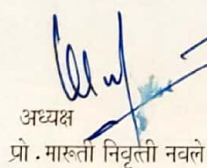 अध्यक्ष
प्रो . मारूती निवृत्ती नवले